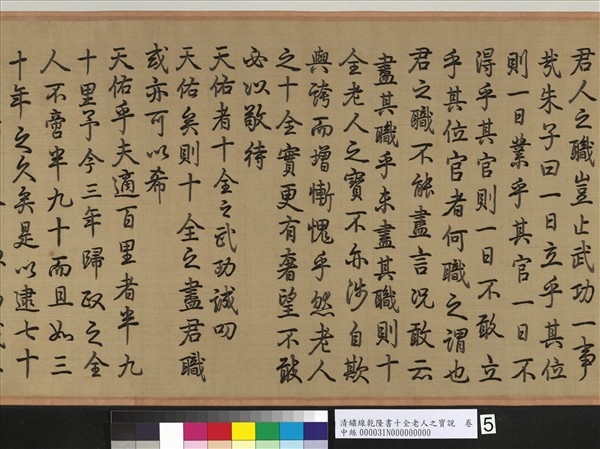 君人之職豈止武功一事
哉朱子曰一日立乎其位
則一日業乎其官一日不
得乎其官則一日不敢立
乎其位官者何職之謂也
君之職不能盡言況敢云
盡其職乎未盡其職則十
全老人之寶不亦涉自欺
與誇而增慚愧乎然老人
之十全實更有奢望不敢
必以敬待
天佑者十全之武功誠叨
天佑矣則十全之盡君職
或亦可以希
天佑乎夫適百里者半九
十里予今三年歸政之全
人不啻半九十而且如三
十年之久矣是以逮七十
清繡線乾隆書十全老人之寶說 卷
中絲000031N000000000
5